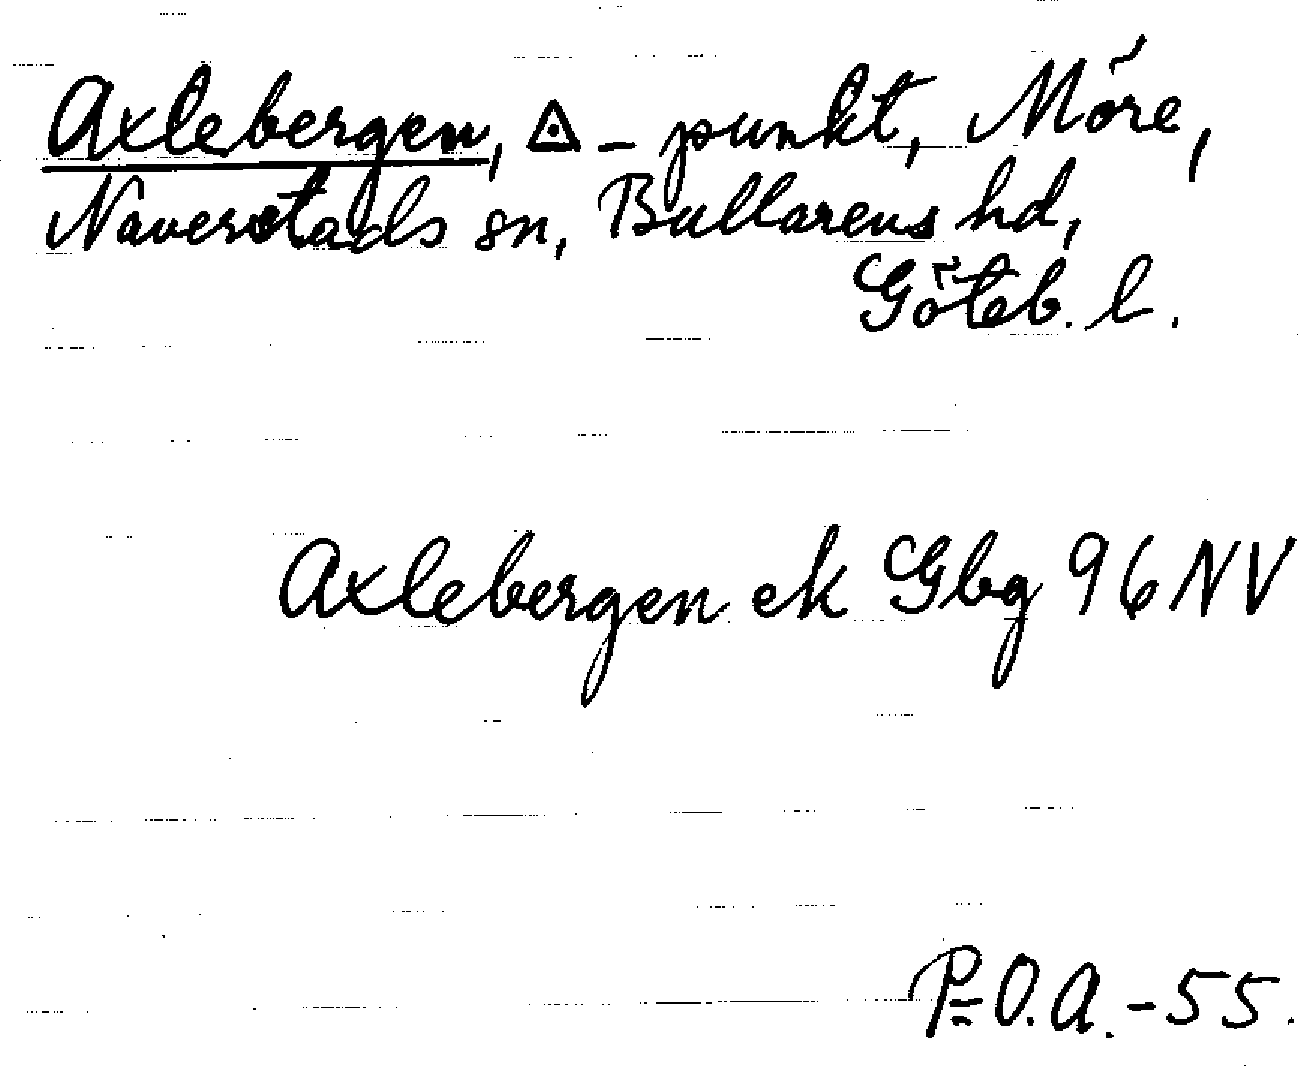 Axlebergen, ◬-punkt, Möre,
Naverstads sn, Bullarens hd,
Göteb. l.
Axlebergen ek Gbg 96 NV
P-O.A.-55.